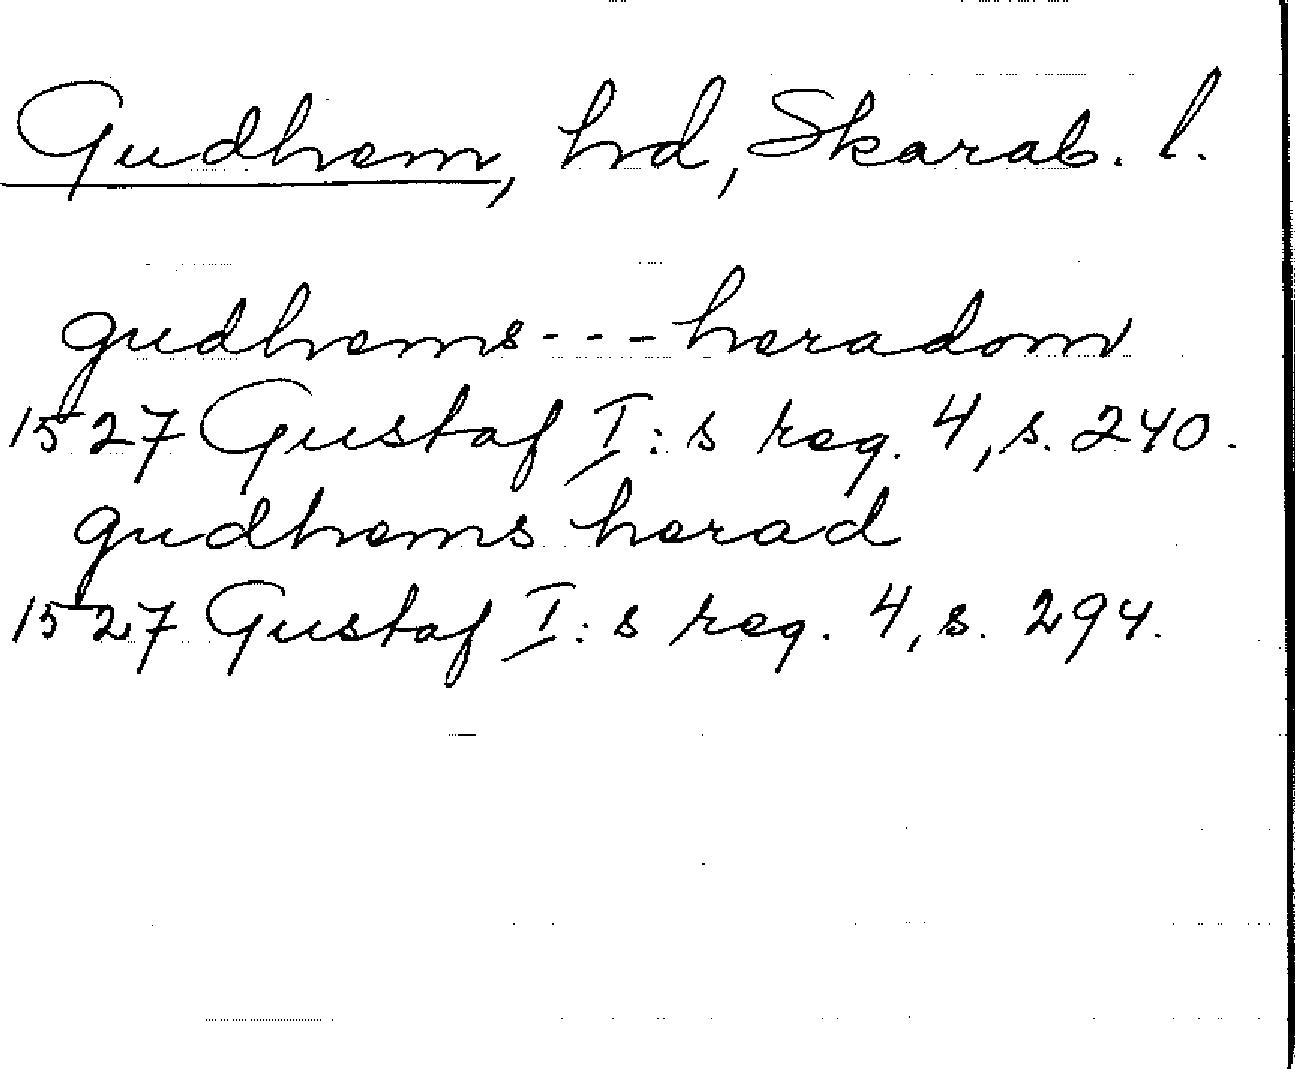 Gudhem, hrd, Skarab. l.
gudhems --- heradom
1527 Gustaf I: s reg. 4, s. 240.
gudhems herad
1527 Gustaf I: s reg. 4, s. 294.